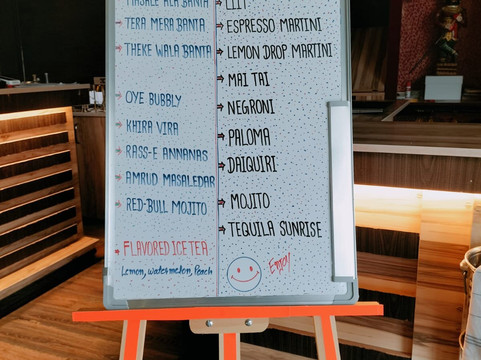 MASALE ALA BANTA
TERA MERA BANTA
THEKE WALA BANTA
OYE BUBBLY
KHIRA VIRA
RASS-E ANNANAS
AMRUD MASALEDAR
RED-BULL MOJITO
FLAVORED ICE TEA
Lemon, watermelon, Peach
LIIT
ESPRESSO MARTINI
LEMON DROP MARTINI
MAI TAI
NEGRONI
PALOMA
DAIQUIRI
MOJITO
TEQUILA SUNRISE
ENJOY